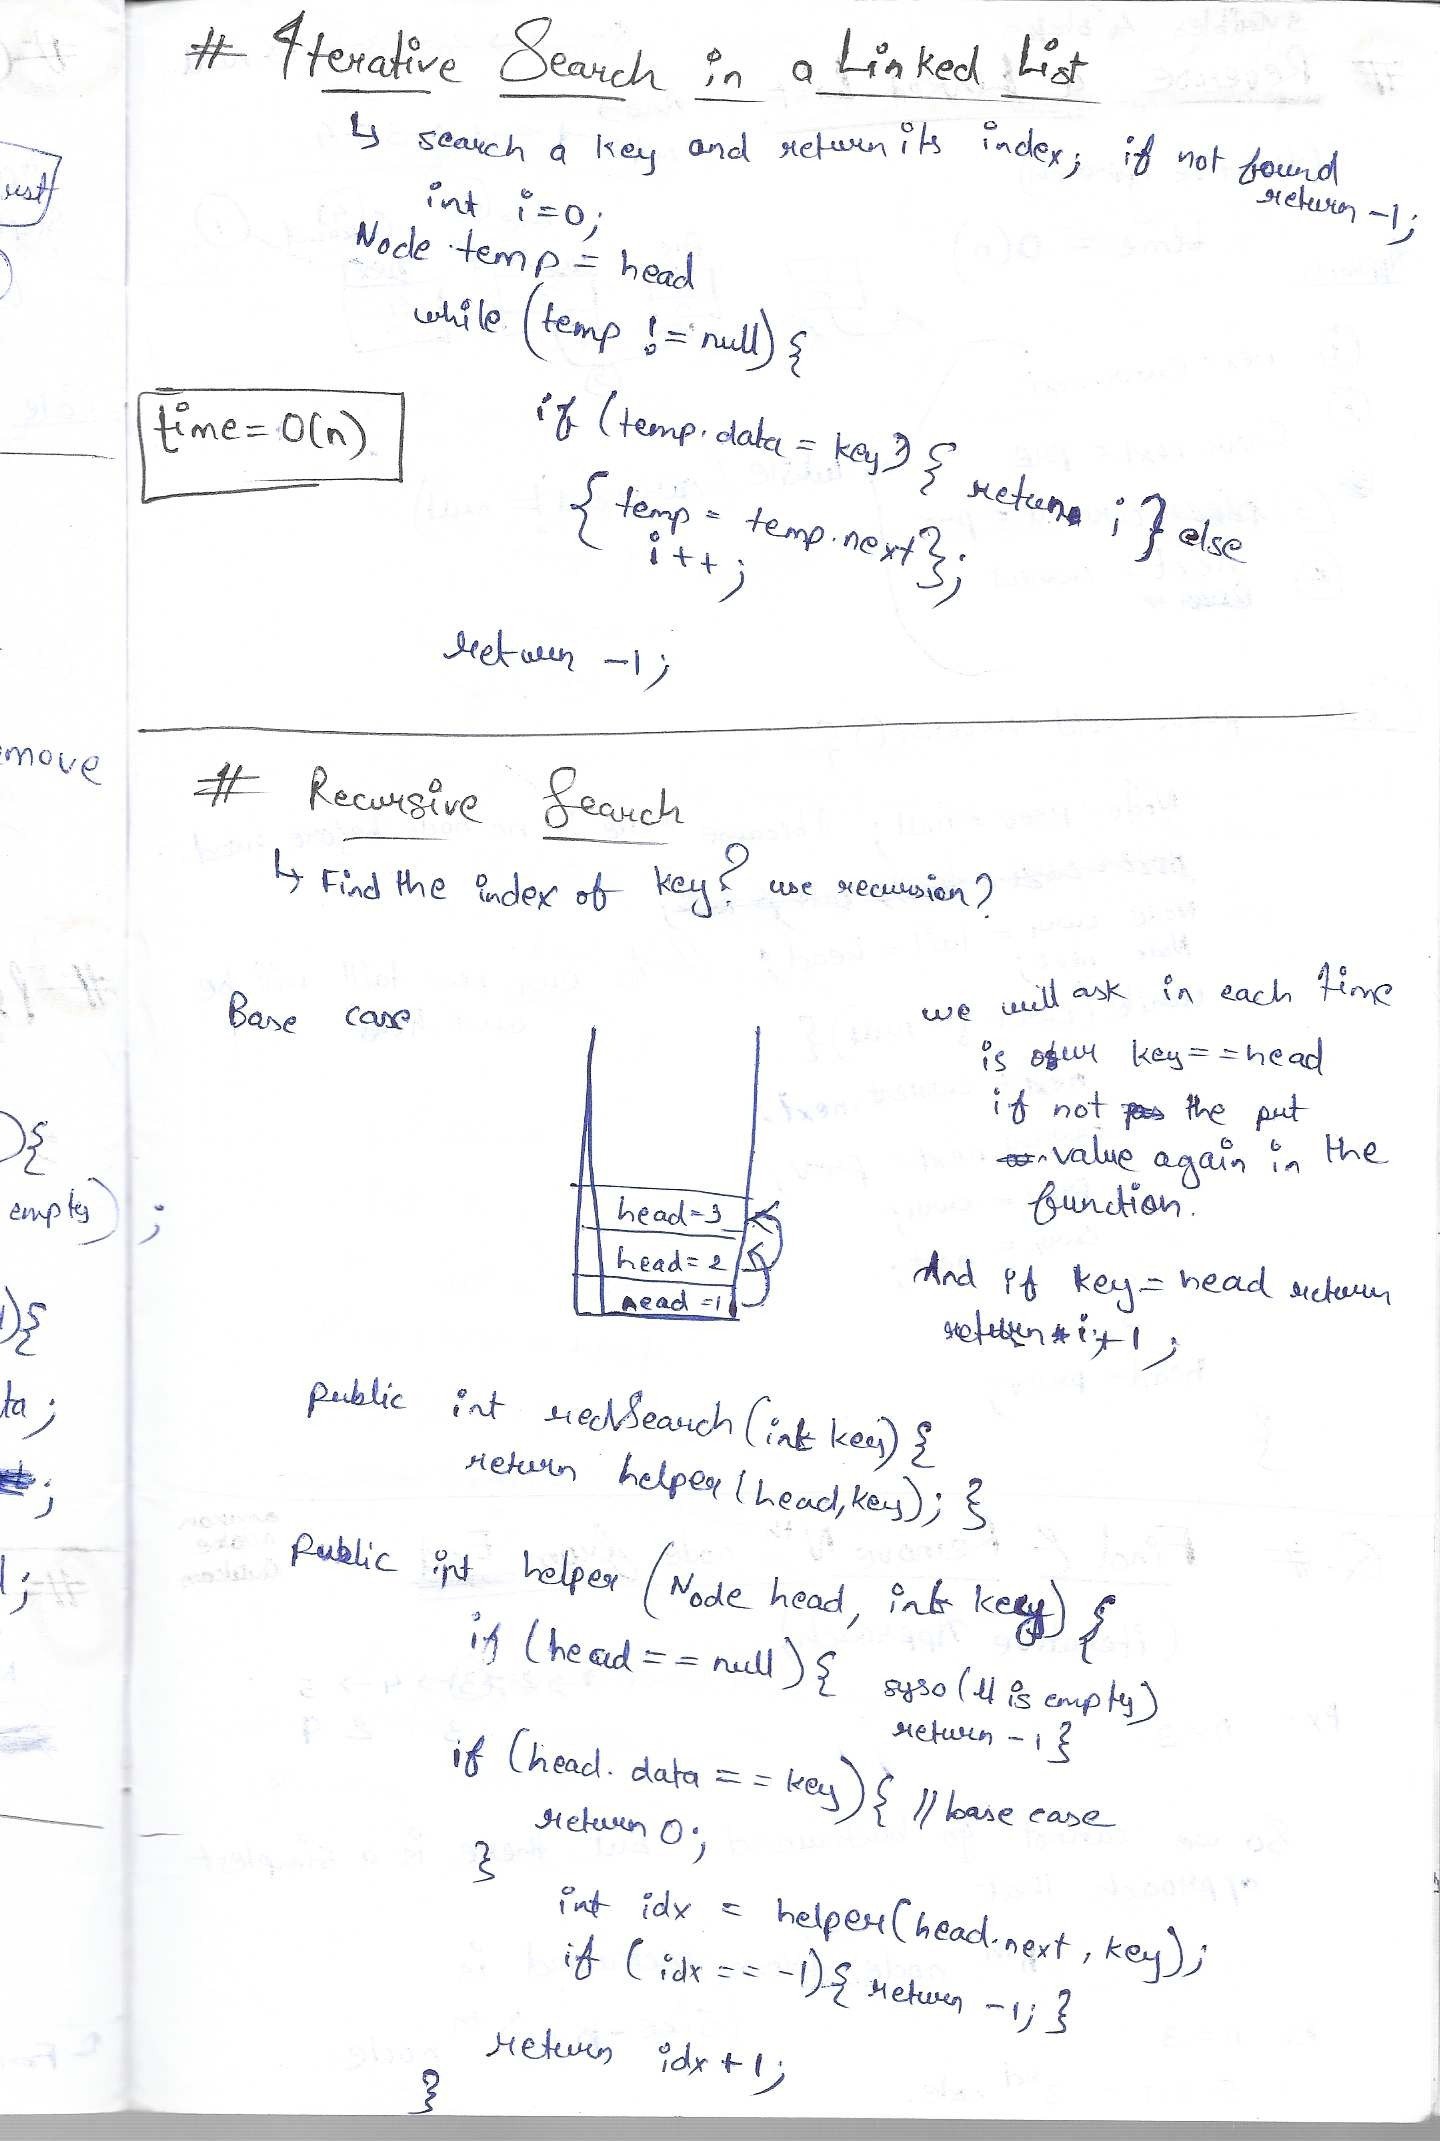 # Iterative Search in a Linked List
↳ search a key and return its index; if not found
return -1;
int i=0;
Node temp = head
while (temp != null) {
time = O(n)
if (temp.data = key) { return i } else
{ temp = temp.next};
i++;
return -1;
# Recursive Search
↳ Find the index of key? use recursion?
Base case
we will ask in each time
is our key==head
if not the put
value again in the
function.
And if key = head return
return i+1;
head=3
head=2
head=1
public int recSearch(int key) {
return helper(head,key); }
Public int helper (Node head, int key) {
if (head == null) { syso(ll is empty)
return -1}
if (head.data == key) { // base case
return 0;
}
int idx = helper(head.next, key);
if (idx == -1) { return -1; }
return idx+1;
}
move
) {
empty) ;
) {
ta;
;
;